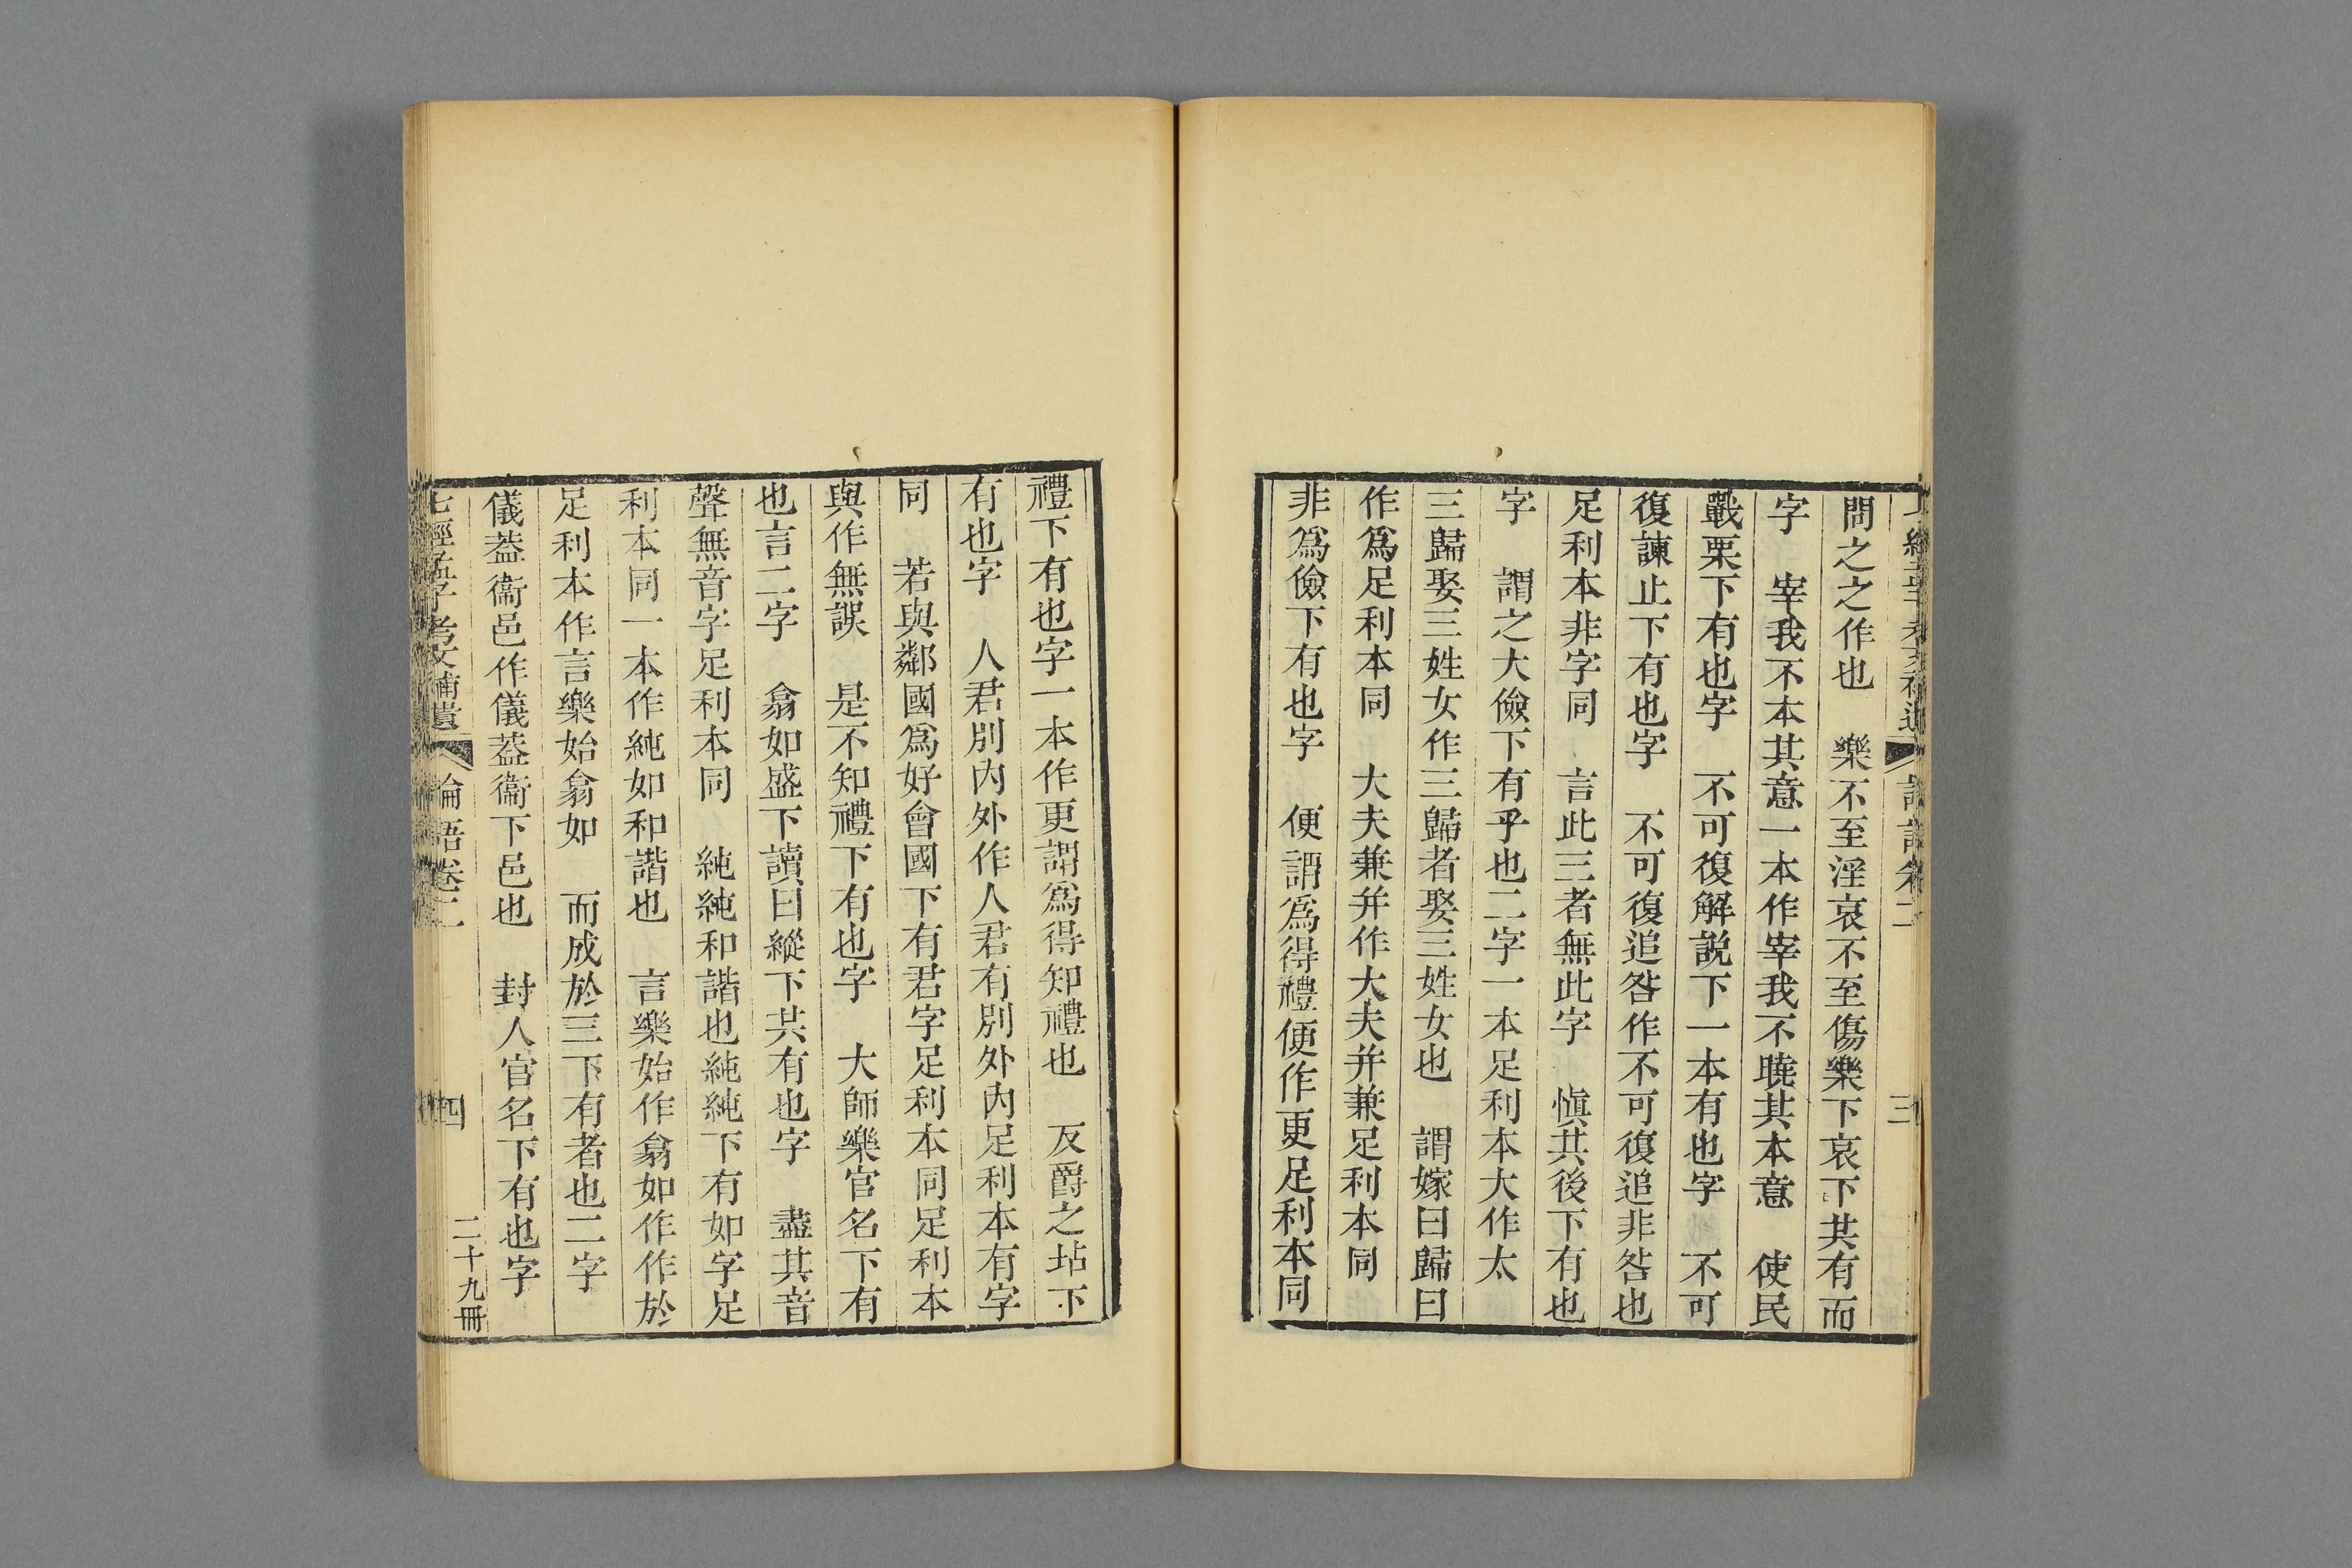 問之之作也　樂不至淫哀不至傷樂下哀下共有而
字　宰我不本其意一本作宰我不曉其本意　使民
戰栗下有也字　不可復解説下一本有也字　不可
復諫止下有也字　不可復追咎作不可復追非咎也
足利本非字同　言此三者無此字　慎其後下有也
字　謂之大儉下有乎也二字一本足利本大作太
三歸娶三姓女作三歸者娶三姓女也　謂嫁曰歸曰
作爲足利本同　大夫兼并作大夫并兼足利本同
非爲儉下有也字　便謂爲得禮便作更足利本同
禮下有也字一本作更謂爲得知禮也　反爵之坫下
有也字　人君別内外作人君有別外内足利本有字
同　若與鄰國爲好會國下有君字足利本同足利本
與作無誤　是不知禮下有也字　大師樂官名下有
也言二字　翕如盛下讀曰縱下共有也字　盡其音
聲無音字足利本同　純純和諧也純純下有如字足
利本同一本作純如和諧也　言樂始作翕如作作於
足利本作言樂始翕如　而成於三下有者也二字
儀葢衞邑作儀葢衞下邑也　封人官名下有也字
七經孟子考文補遺　論語卷二　四　二十九冊